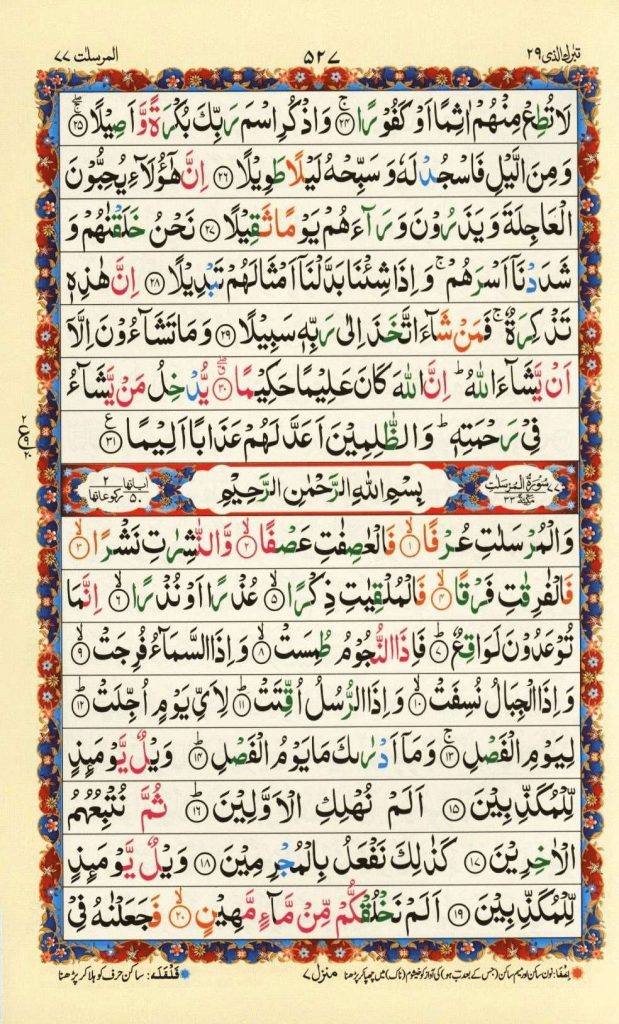 تبٰرك الذی ۲۹
۵۲۷
المرسلٰت ۷۷
لَا تُطِعْ مِنْهُمْ اٰثِمًا اَوْ كَفُوْرًا ۚ﴿۲۴﴾ وَ اذْكُرِ اسْمَ رَبِّكَ بُكْرَةً وَّ اَصِیْلًا ۖۚ﴿۲۵﴾
وَ مِنَ الَّیْلِ فَاسْجُدْ لَهٗ وَ سَبِّحْهُ لَیْلًا طَوِیْلًا ﴿۲۶﴾ اِنَّ هٰۤؤُلَآءِ یُحِبُّوْنَ
الْعَاجِلَةَ وَ یَذَرُوْنَ وَرَآءَهُمْ یَوْمًا ثَقِیْلًا ﴿۲۷﴾ نَحْنُ خَلَقْنٰهُمْ وَ
شَدَدْنَاۤ اَسْرَهُمْ ۚ وَ اِذَا شِئْنَا بَدَّلْنَاۤ اَمْثَالَهُمْ تَبْدِیْلًا ﴿۲۸﴾ اِنَّ هٰذِهٖ
تَذْكِرَةٌ ۚ فَمَنْ شَآءَ اتَّخَذَ اِلٰی رَبِّهٖ سَبِیْلًا ﴿۲۹﴾ وَ مَا تَشَآءُوْنَ اِلَّاۤ
اَنْ یَّشَآءَ اللّٰهُ ؕ اِنَّ اللّٰهَ كَانَ عَلِیْمًا حَكِیْمًا ۗۖ﴿۳۰﴾ یُّدْخِلُ مَنْ یَّشَآءُ
فِیْ رَحْمَتِهٖ ؕ وَ الظّٰلِمِیْنَ اَعَدَّ لَهُمْ عَذَابًا اَلِیْمًا ﴿۳۱﴾ ع
۲
ع ۹
۲۰
۷۷ سُوْرَةُ الْمُرْسَلٰتِ مَكِّیَّةٌ ۳۳
بِسْمِ اللّٰهِ الرَّحْمٰنِ الرَّحِیْمِ
اٰیاتها ۵۰ ركوعاتها ۲
وَ الْمُرْسَلٰتِ عُرْفًا ۙ﴿۱﴾ فَالْعٰصِفٰتِ عَصْفًا ۙ﴿۲﴾ وَّ النّٰشِرٰتِ نَشْرًا ۙ﴿۳﴾
فَالْفٰرِقٰتِ فَرْقًا ۙ﴿۴﴾ فَالْمُلْقِیٰتِ ذِكْرًا ۙ﴿۵﴾ عُذْرًا اَوْ نُذْرًا ۙ﴿۶﴾ اِنَّمَا
تُوْعَدُوْنَ لَوَاقِعٌ ؕ﴿۷﴾ فَاِذَا النُّجُوْمُ طُمِسَتْ ۙ﴿۸﴾ وَ اِذَا السَّمَآءُ فُرِجَتْ ۙ﴿۹﴾
وَ اِذَا الْجِبَالُ نُسِفَتْ ۙ﴿۱۰﴾ وَ اِذَا الرُّسُلُ اُقِّتَتْ ؕ﴿۱۱﴾ لِاَیِّ یَوْمٍ اُجِّلَتْ ؕ﴿۱۲﴾
لِیَوْمِ الْفَصْلِ ۚ﴿۱۳﴾ وَ مَاۤ اَدْرٰىكَ مَا یَوْمُ الْفَصْلِ ؕ﴿۱۴﴾ وَیْلٌ یَّوْمَىِٕذٍ
لِّلْمُكَذِّبِیْنَ ﴿۱۵﴾ اَلَمْ نُهْلِكِ الْاَوَّلِیْنَ ؕ﴿۱۶﴾ ثُمَّ نُتْبِعُهُمُ
الْاٰخِرِیْنَ ﴿۱۷﴾ كَذٰلِكَ نَفْعَلُ بِالْمُجْرِمِیْنَ ﴿۱۸﴾ وَیْلٌ یَّوْمَىِٕذٍ
لِّلْمُكَذِّبِیْنَ ﴿۱۹﴾ اَلَمْ نَخْلُقْكُّمْ مِّنْ مَّآءٍ مَّهِیْنٍ ۙ﴿۲۰﴾ فَجَعَلْنٰهُ فِیْ
اِخفا: نون ساکن اور میم ساکن (جس کے بعد ب ہو) کی آواز کو خیشوم (ناک) میں چھپا کر پڑھنا
منزل ۷
قلقلہ: ساکن حرف کو ہلا کر پڑھنا